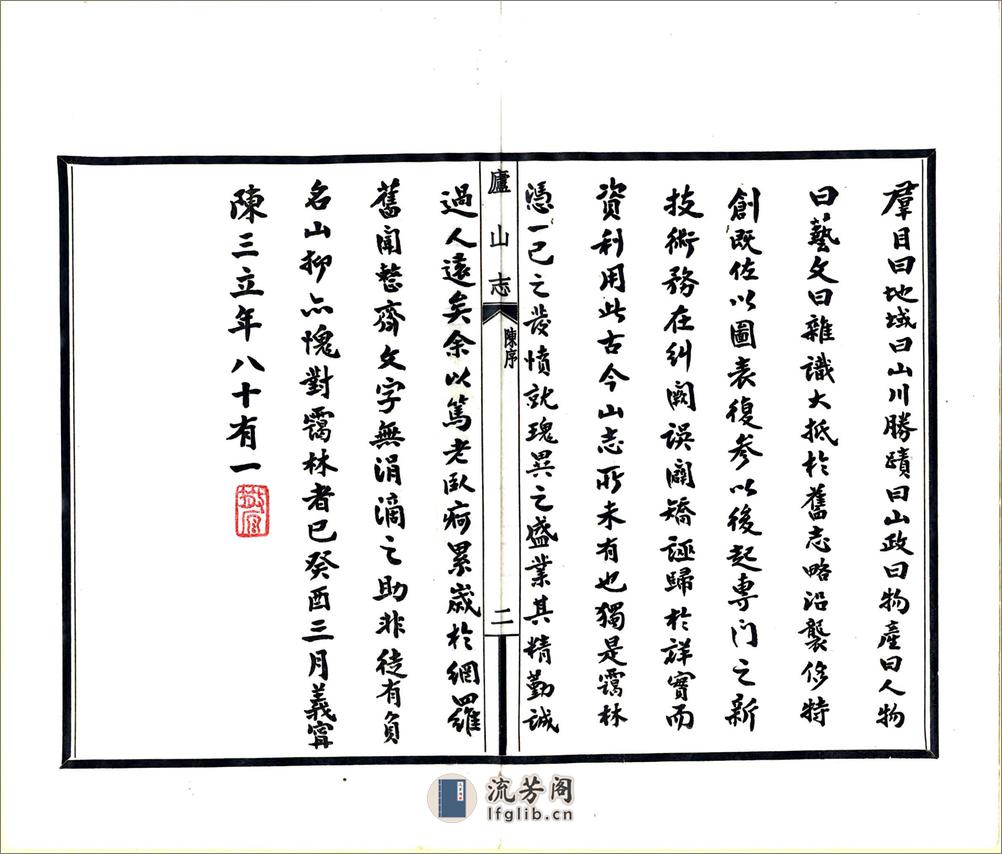 羣目曰地域曰山川勝蹟曰山政曰物產曰人物
曰藝文曰雜識大抵於舊志略沿襲修特
創既佐以圖表復參以後起專門之新
技術務在糾闕誤闢矯誣歸於詳實而
資利用此古今山志所未有也獨是靄林
憑一己之發憤就瑰異之盛業其精勤誠
廬山志
陳序
二
過人遠矣余以篤老臥疴累歲於網羅
舊聞整齊文字無涓滴之助非徒有負
名山抑亦愧對靄林者已癸酉三月義甯
陳三立年八十有一
流芳阁
lfglib.cn